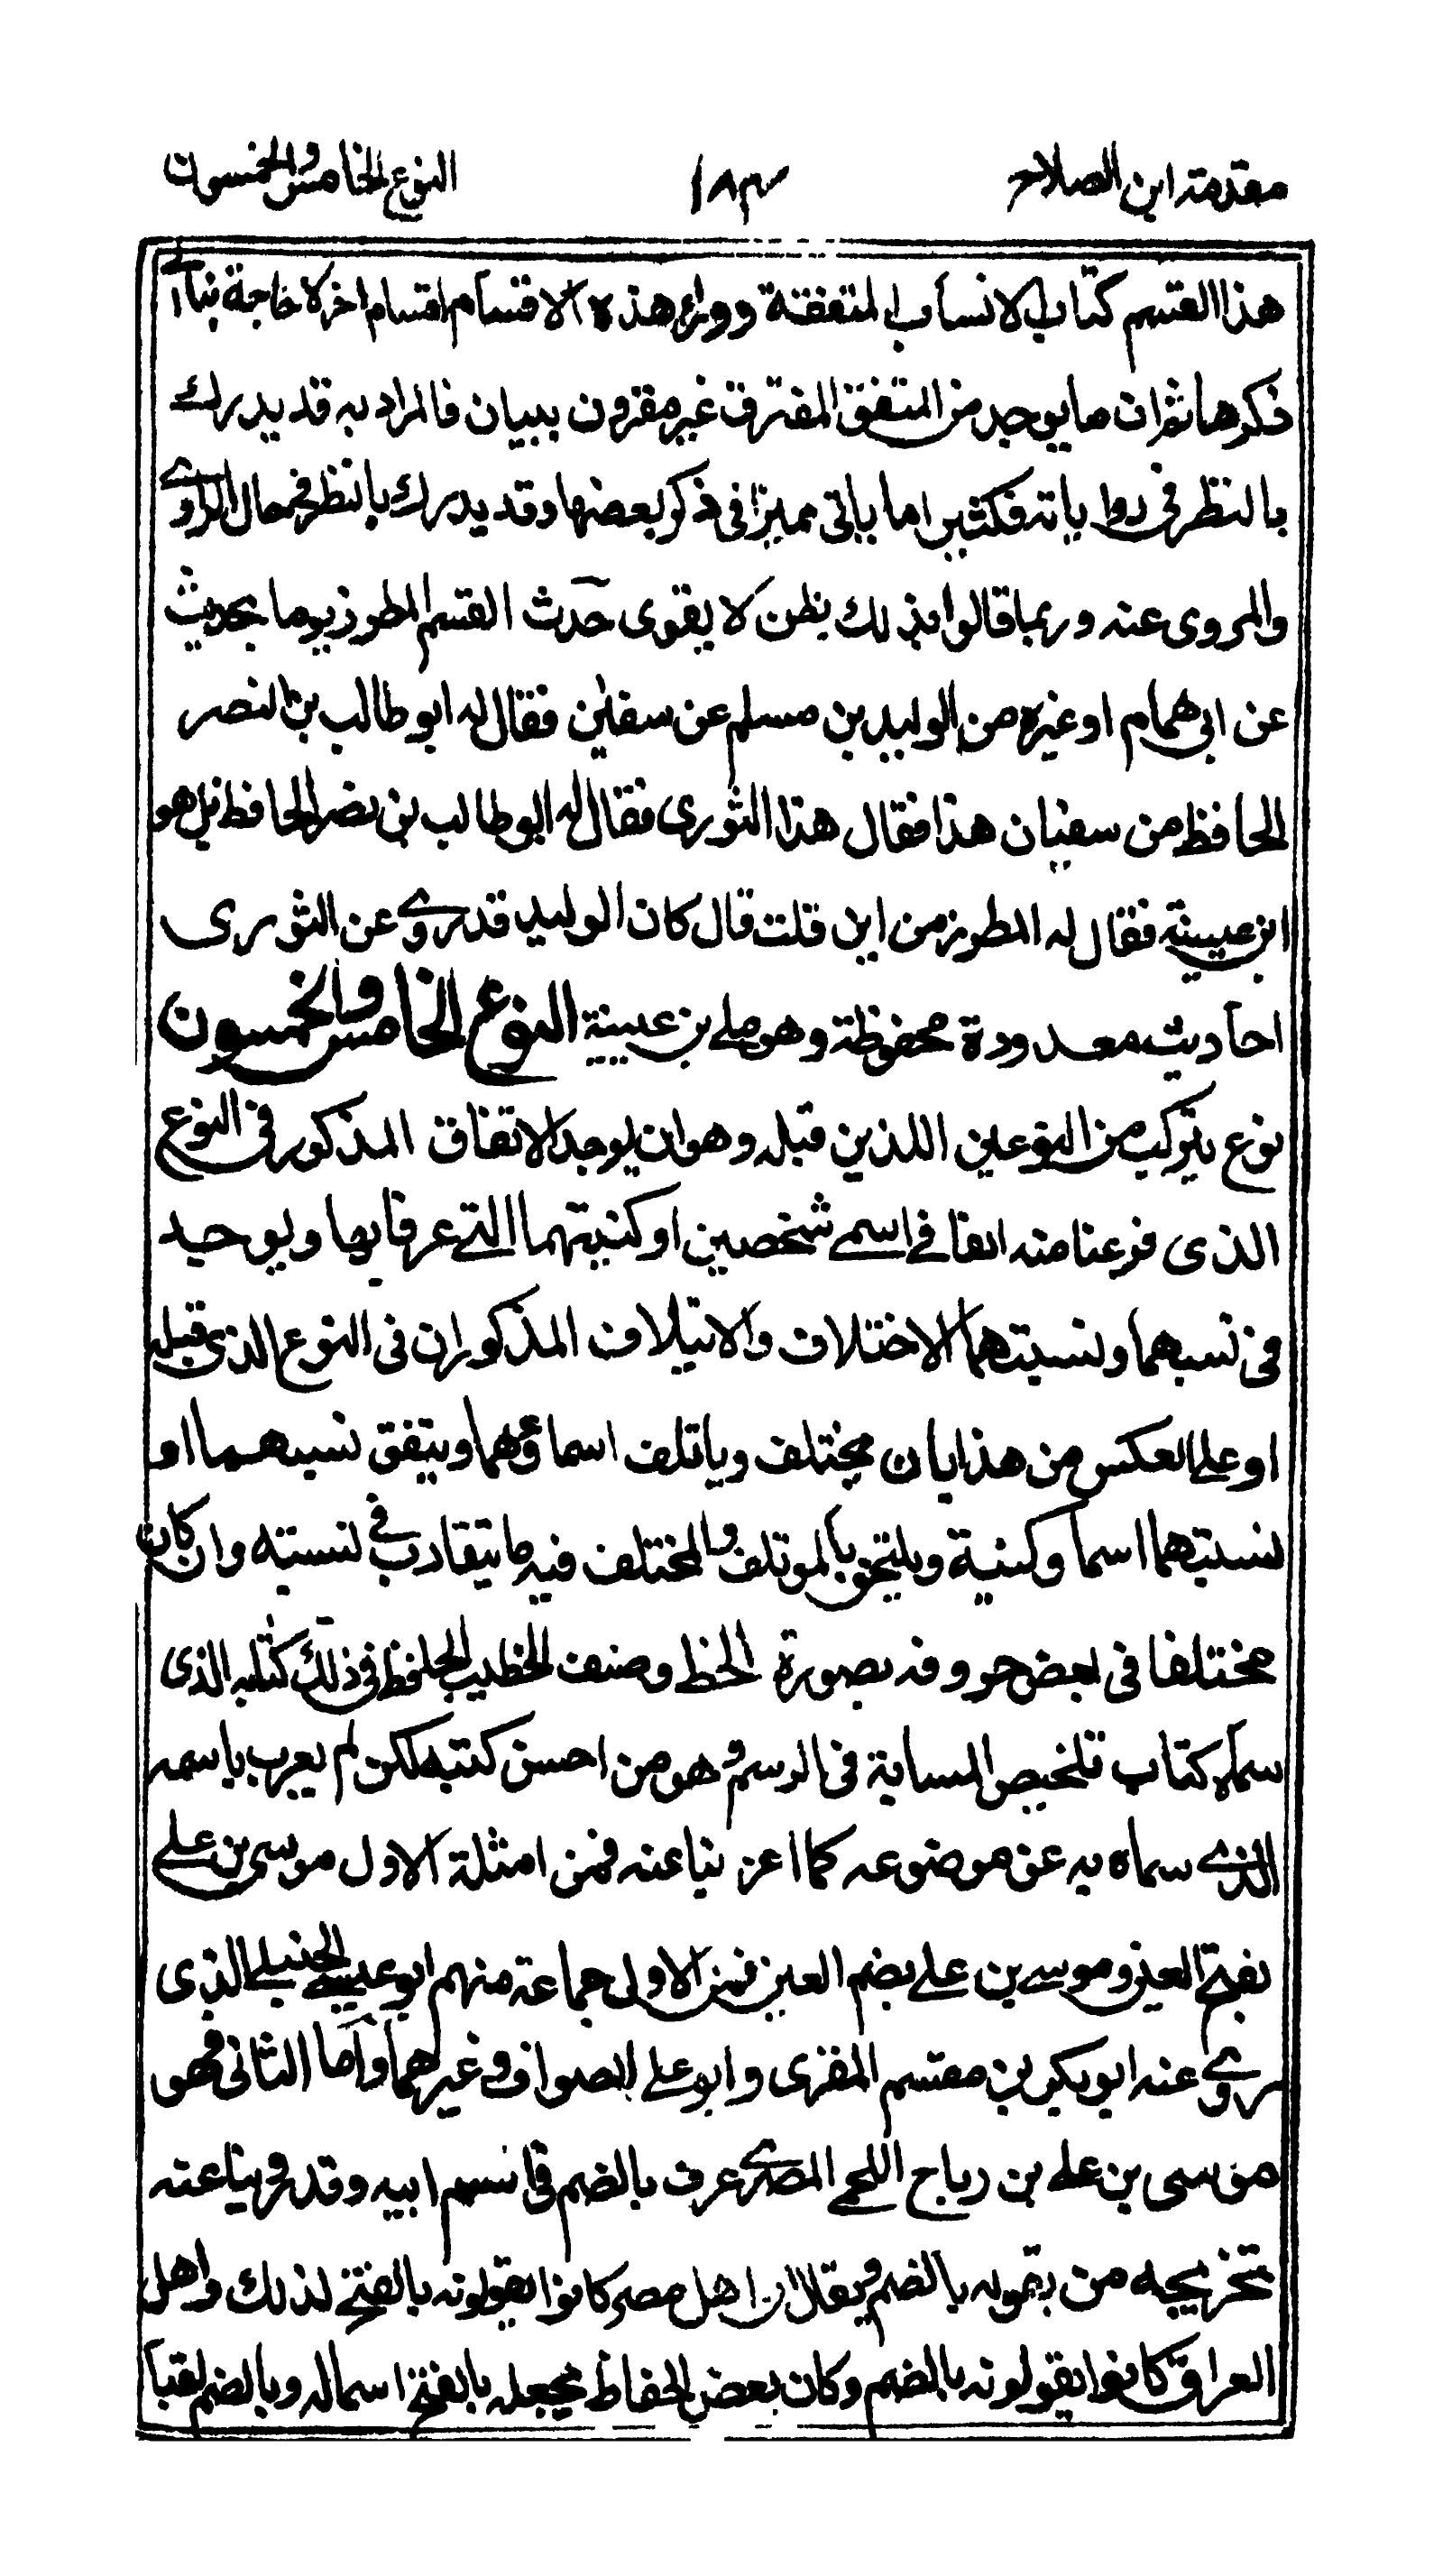 مقدمته ابن الصلاح ١٨٣ النوع الخامس والخمسون
هذا القسم كتاب الانساب المتفقة ووراء هذه الاقسام اقسام اخر لا حاجة بنا الى
ذكرها ثم ان ما يوجد من المتفق المفترق غير مقرون ببيان فالمراد به قد يدرك
بالنظر فى رواياته فكثيرا ما ياتى مميزا فى ذكر بعضها وقد يدرك بالنظر فى حال الراوى
والمروى عنه وربما قالوا فى ذلك بظن لا يقوى حدث القسم المطرز يوما بحديث
عن ابى همام او غيره من الوليد بن مسلم عن سفين فقال له ابو طالب بن النصر
الحافظ من سفيان هذا فقال هذا الثورى فقال له ابو طالب بن نصر الحافظ بل هو
ابن عيينة فقال له المطرز من اين قلت قال كان الوليد قد روى عن الثورى
احاديث معدودة محفوظة وهو ملى بن عيينة النوع الخامس والخمسون
نوع يتركب من النوعين اللذين قبله وهو ان يوجد الاتفاق المذكور فى النوع
الذى فرغنا منه انفا فى اسمى شخصين او كنيتهما التى عرفا بها ويوجد
فى نسبهما ونسبتهما الاختلاف والايتلاف المذكوران فى النوع الذى قبله
او على العكس من هذا بان يختلف وياتلف اسماؤهما ويتفق نسبهما او
نسبتهما اسما وكنية ويلتحق بالموتلف والمختلف فيه ما يتقارب فى لنسبته وان كان
مختلفا فى بعض حروفه بصورة الخط وصنف الخطيب الحافظ فى ذلك كتابه الذى
سماه كتاب تلخيص المسابة فى الرسم وهو من احسن كتبه لكن لم يعرب باسمه
الذى سماه به عن موضوعه كما اعربنا عنه فمن امثلة الاول موسى بن على
بفتح العين وموسى بن على بضم العين فمن الاولى جماعة منهم ابو عيسى الحنبلى الذى
روى عنه ابو بكر بن مقسم المقرى وابو على الصواف وغيرهما واما الثانى فهو
موسى بن على بن رباح اللخمى المصرى عرف بالضم فى اسم ابيه وقد روينا عنه
تخريجه من يقوله بالضم ويقال ان اهل مصر كانوا يقولونه بالفتح لذلك واهل
العراق كانوا يقولونه بالضم وكان بعض الحفاظ يجعله بالفتح اسما له وبالضم لقبا